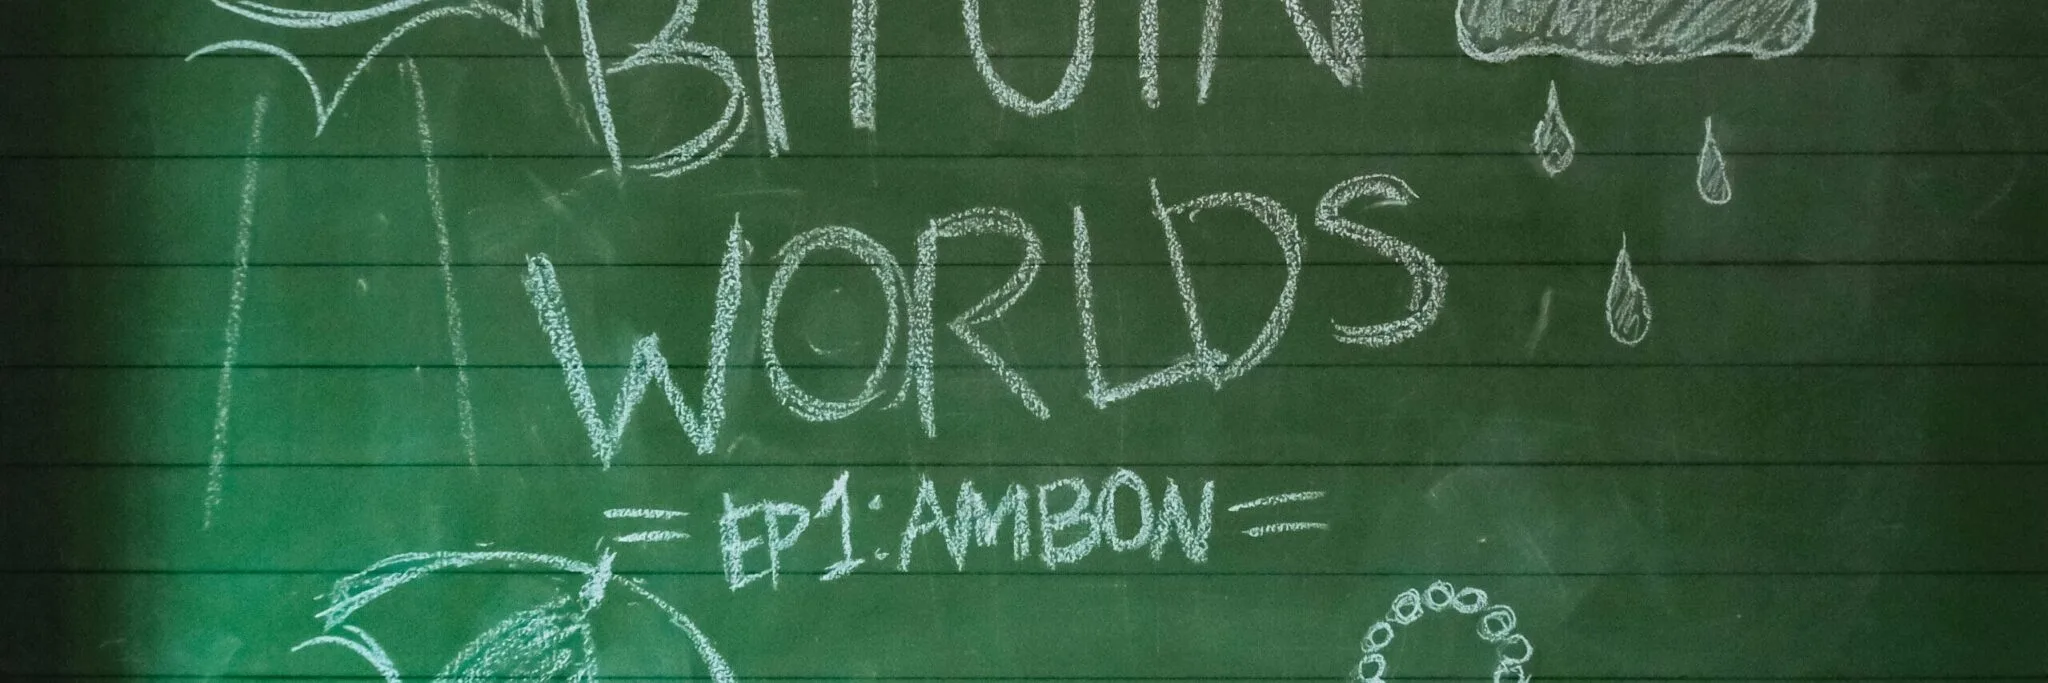 BITUIN
WORLDS
= EP1: AMBON =